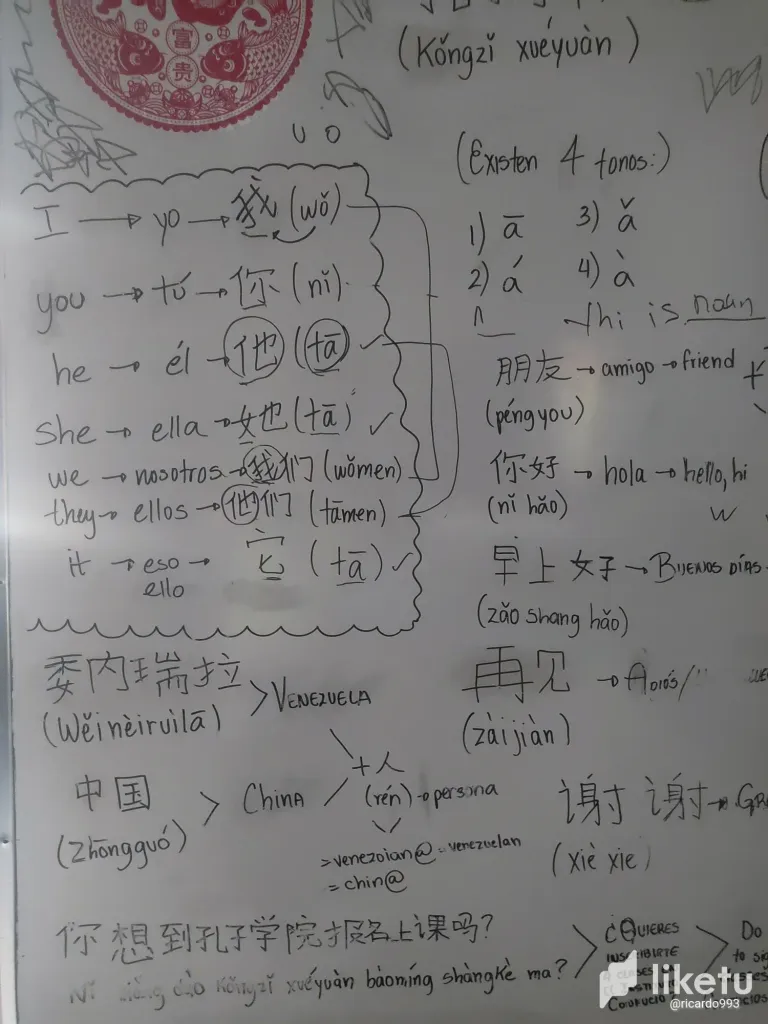 富
贵
(Kǒngzǐ xuéyuàn)
U O
(Existen 4 tonos:)
1) ā
2) á
3) ǎ
4) à
thi is noun
I → yo → 我 (wǒ)
you → tú → 你 (nǐ)
he → él → 他 (tā)
she → ella → 她 (tā) ✓
we → nosotros → 我们 (wǒmen)
they → ellos → 他们 (tāmen)
it → eso → 它 (tā) ✓
ello
朋友 → amigo → friend
(péngyou)
你好 → hola → hello, hi
(nǐ hǎo)
w
早上好 → BUENOS DÍAS
(zǎo shang hǎo)
再见 → ADIÓS/
(zàijiàn)
谢谢 → GR
(xiè xie)
委内瑞拉 > VENEZUELA
(Wěinèiruìlā)
中国 > CHINA
(Zhōngguó)
+人
(rén) → persona
= venezolan@ = venezuelan
= chin@
你想到孔子学院报名上课吗?
Nǐ xiǎng dào kǒngzǐ xuéyuàn bàomíng shàngkè ma?
¿QUIERES
INSCRIBIRTE
Do
to
liketu
@ricardo993